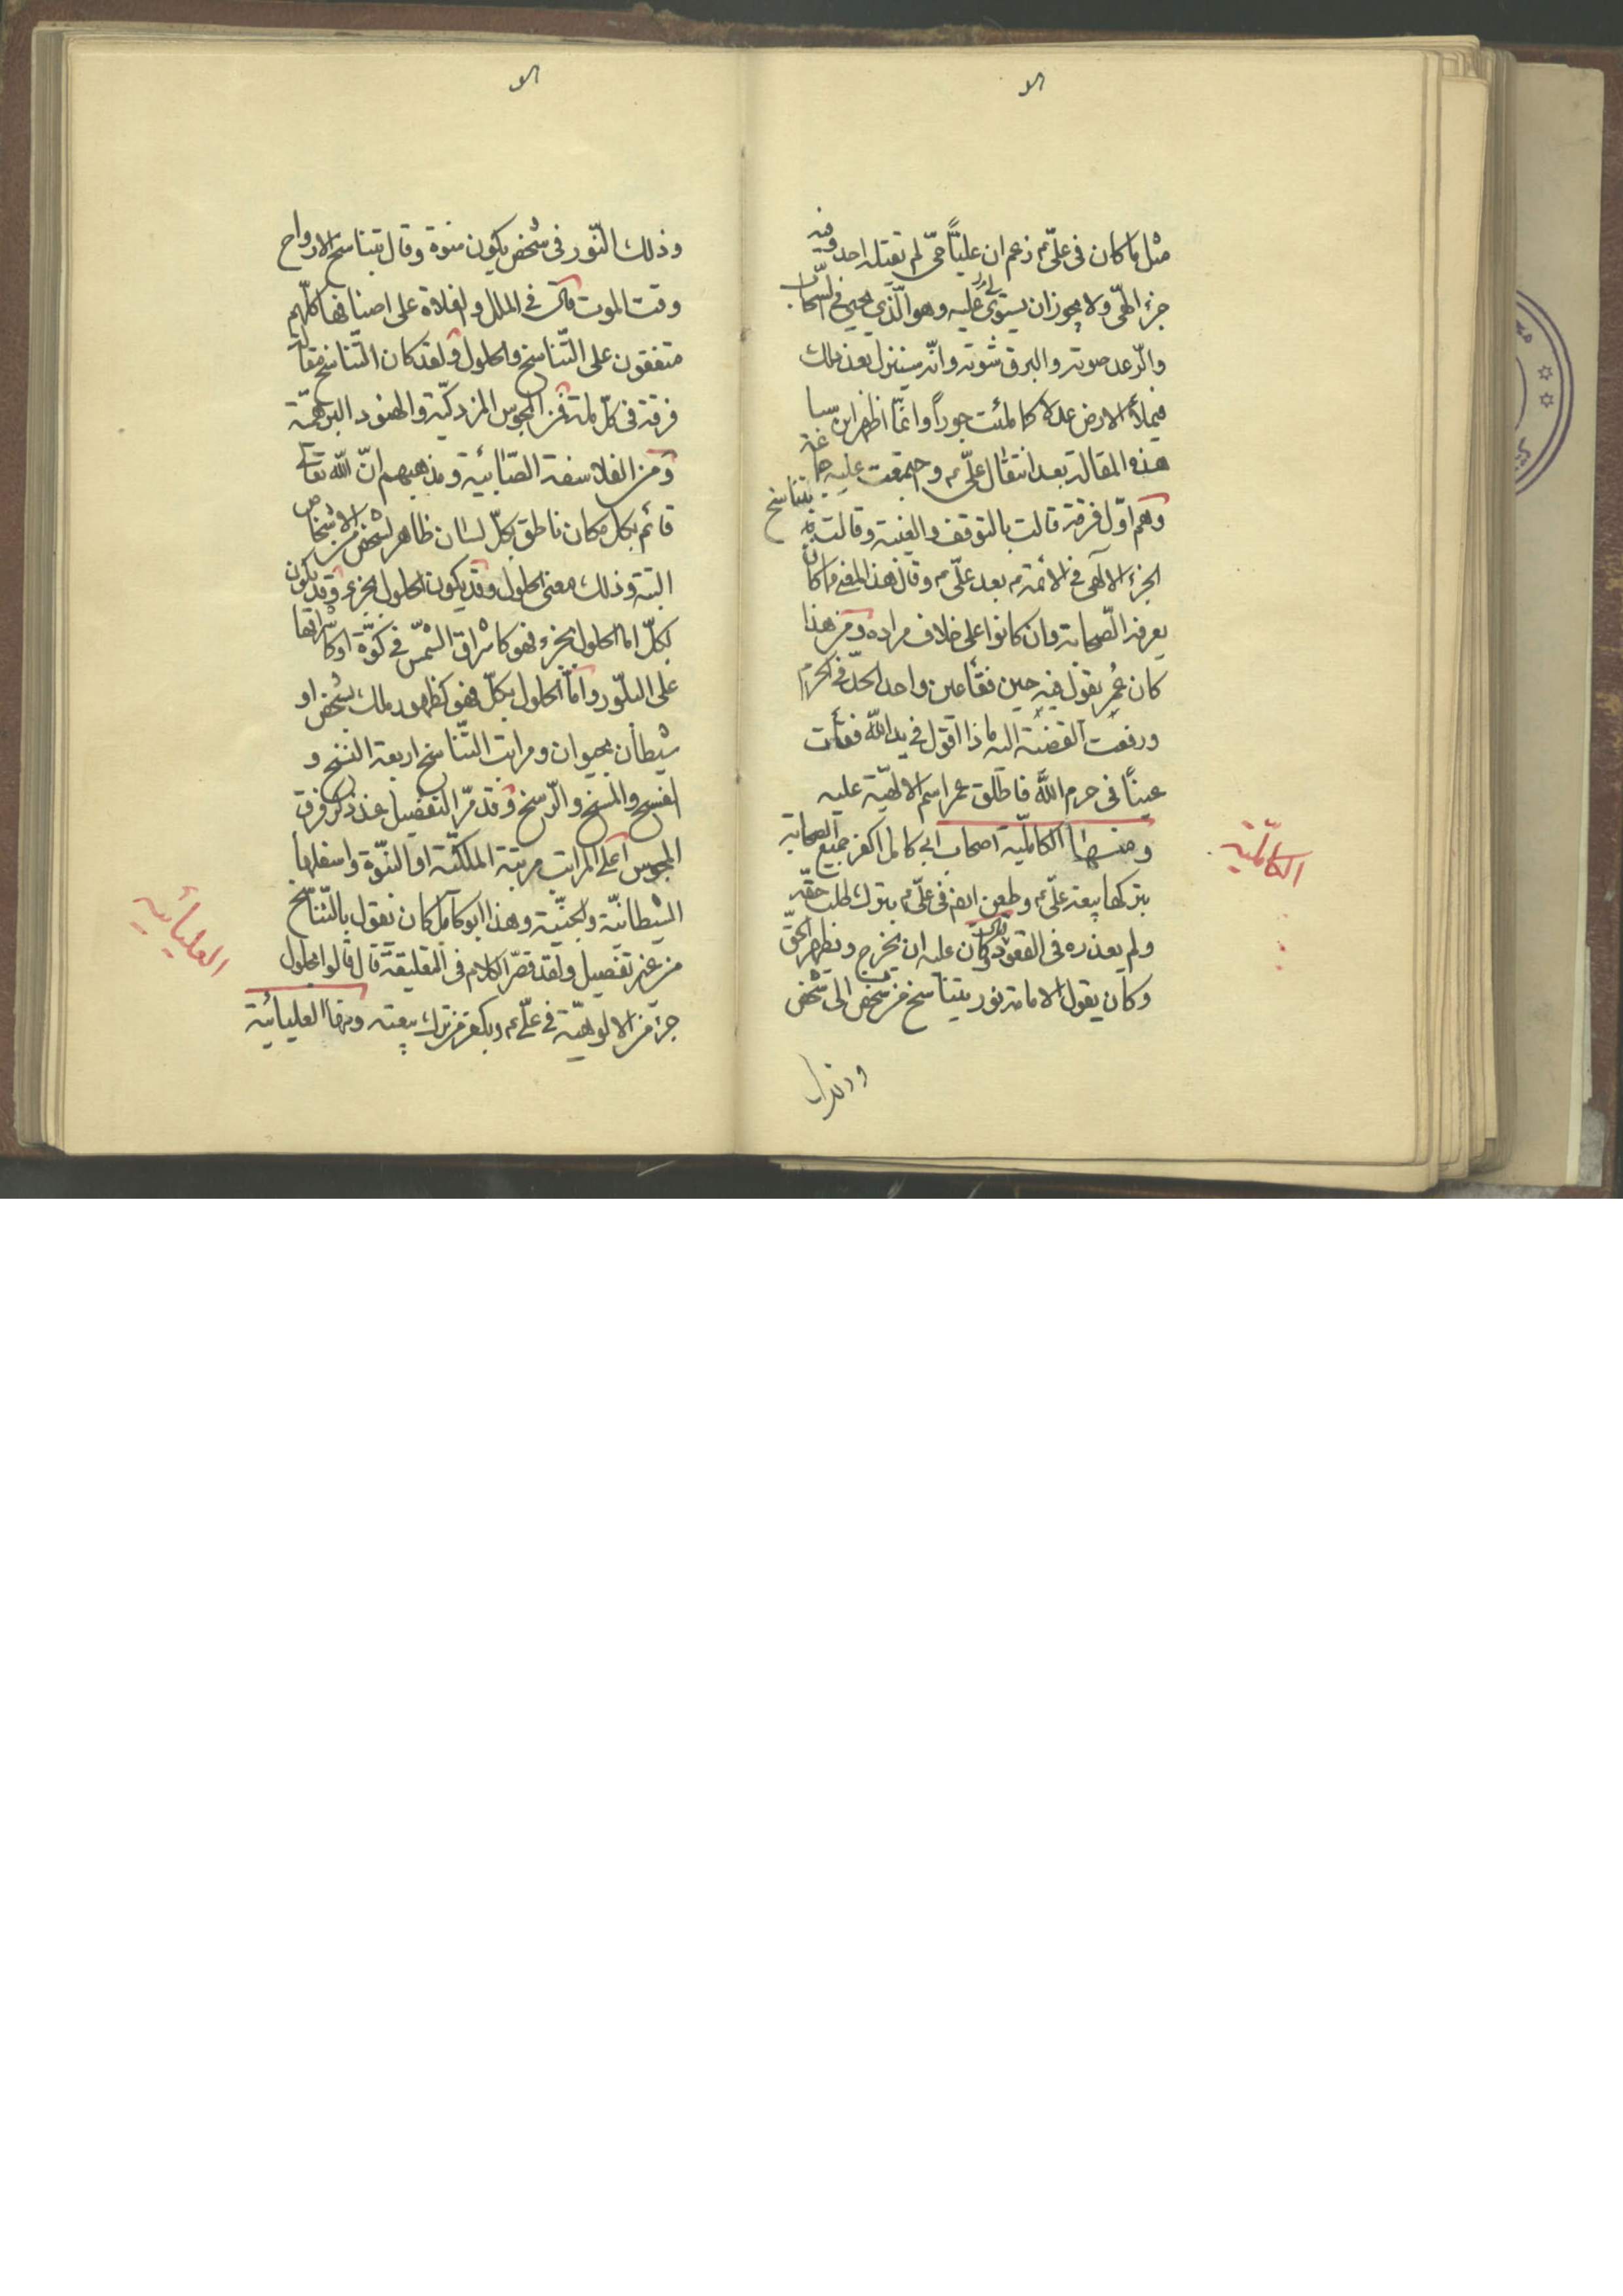 مثل ما كان فى علىّ ع زعم ان عليّاً حىّ لم يقتله احد وفيه
جزء الهى ولا يجوز ان يستولى عليه وهو الّذي يجيئ فى السّحاب
والرّعد صوته والبرق سوته وانّه سينزل بعد ذلك
فيملأ الارض عدلا كما ملئت جوراً وانّما اظهر ابن سبا
هذه المقالة بعد انتقال علىّ ع واجتمعت عليه جماعة
وهم اوّل فرقة قالت بالتوقف والغيبة وقالت بتناسخ
الجزء الالهى فى الأئمة ع بعد علىّ ع وقال هذا المعنى ما كان
يعرفه الصّحابة وان كانوا على خلاف مراده ومن هذا
كان عمر يقول فيه حين فقأ عين واحد الحدّ فى الحرم
ورفعت القضيّة اليه ماذا اقول فى يد اللّه فقأت
عيناً فى حرم اللّه فاطلق عمر اسم الالهيّة عليه
ومنها الكامليّة اصحاب ابى كامل اكفر جميع الصحابة
بتركها بيعة علىّ ع وطعن ايضا فى علىّ ع بترك طلب حقّه
ولم يعذره فى القعود وكان عليه ان يخرج ويظهر الحقّ
وكان يقول الامامة نور يتناسخ من شخص الى شخص
وذلك
الكامليّة
وذلك النّور فى شخص يكون نبوة وقال بتناسخ الارواح
وقت الموت قال فى الملل والغلاة على اصنافها كلّهم
متفقون على التّناسخ والحلول ولقد كان التّناسخ مقالة
فرقة فى كلّ ملة من المجوس المزدكيّة والهنود البرهميّة
ومن الفلاسفة الصّابئية ومذهبهم انّ اللّه تعالى
قائم بكل مكان ناطق بكلّ لسان ظاهر لشخص من الاشخاص
البتة وذلك معنى الحلول وقد يكون الحلول بجزء وقد يكون
بكلّ اما الحلول بجزء فهو كاشراق الشّمس فى كوّة او كاشراقها
على البلّور وامّا الحلول بكلّ فهو كظهور ملك بشخص او
شيطان بحيوان ومراتب التّناسخ اربعة النسخ و
الفسخ والمسخ والرّسخ وقد مرّ التفصيل عند ذكر فرق
المجوس اعلى المراتب مرتبة الملكيّة او النبوّة واسفلها
الشيطانيّة والجنيّة وهذا ابو كامل كان يقول بالتّناسخ
من غير تفصيل ولقد قصّر الكلام فى التعليقة قال قالوا بحلول
جزء من الالوهيّة فى علىّ ع ويكفر من ترك بيعته ومنها العليائية
العليائيه